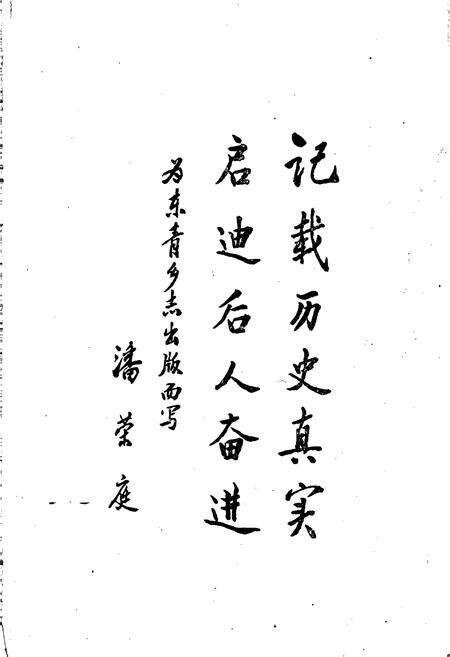 记载历史真实
启迪后人奋进
为东青乡志出版而写
潘荣庭